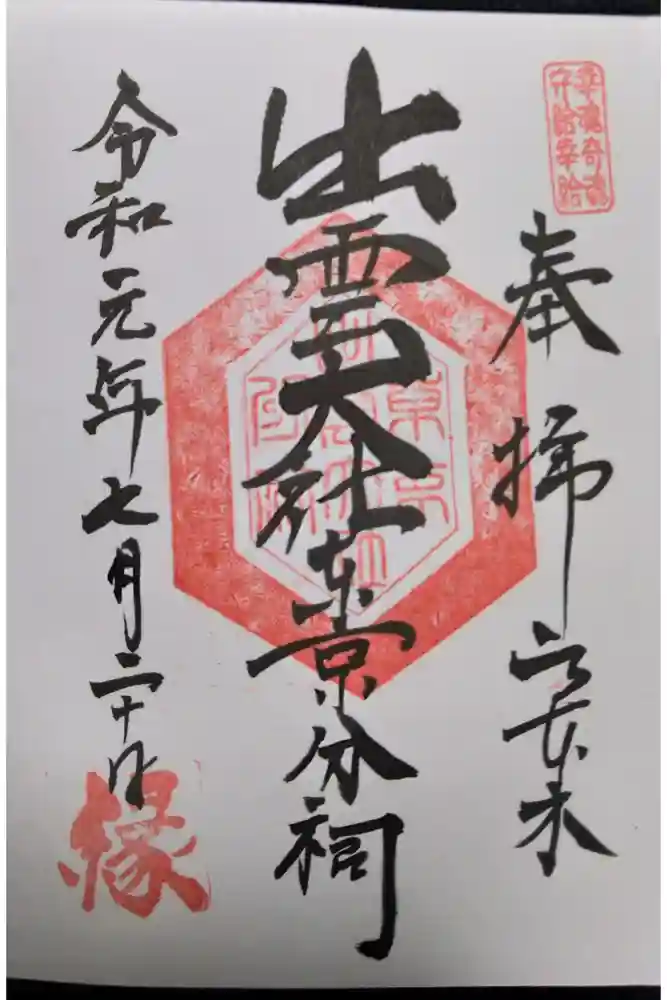 幸魂奇魂
守給幸給
奉拝 六本木
出雲大社東京分祠
令和元年七月二十日
縁